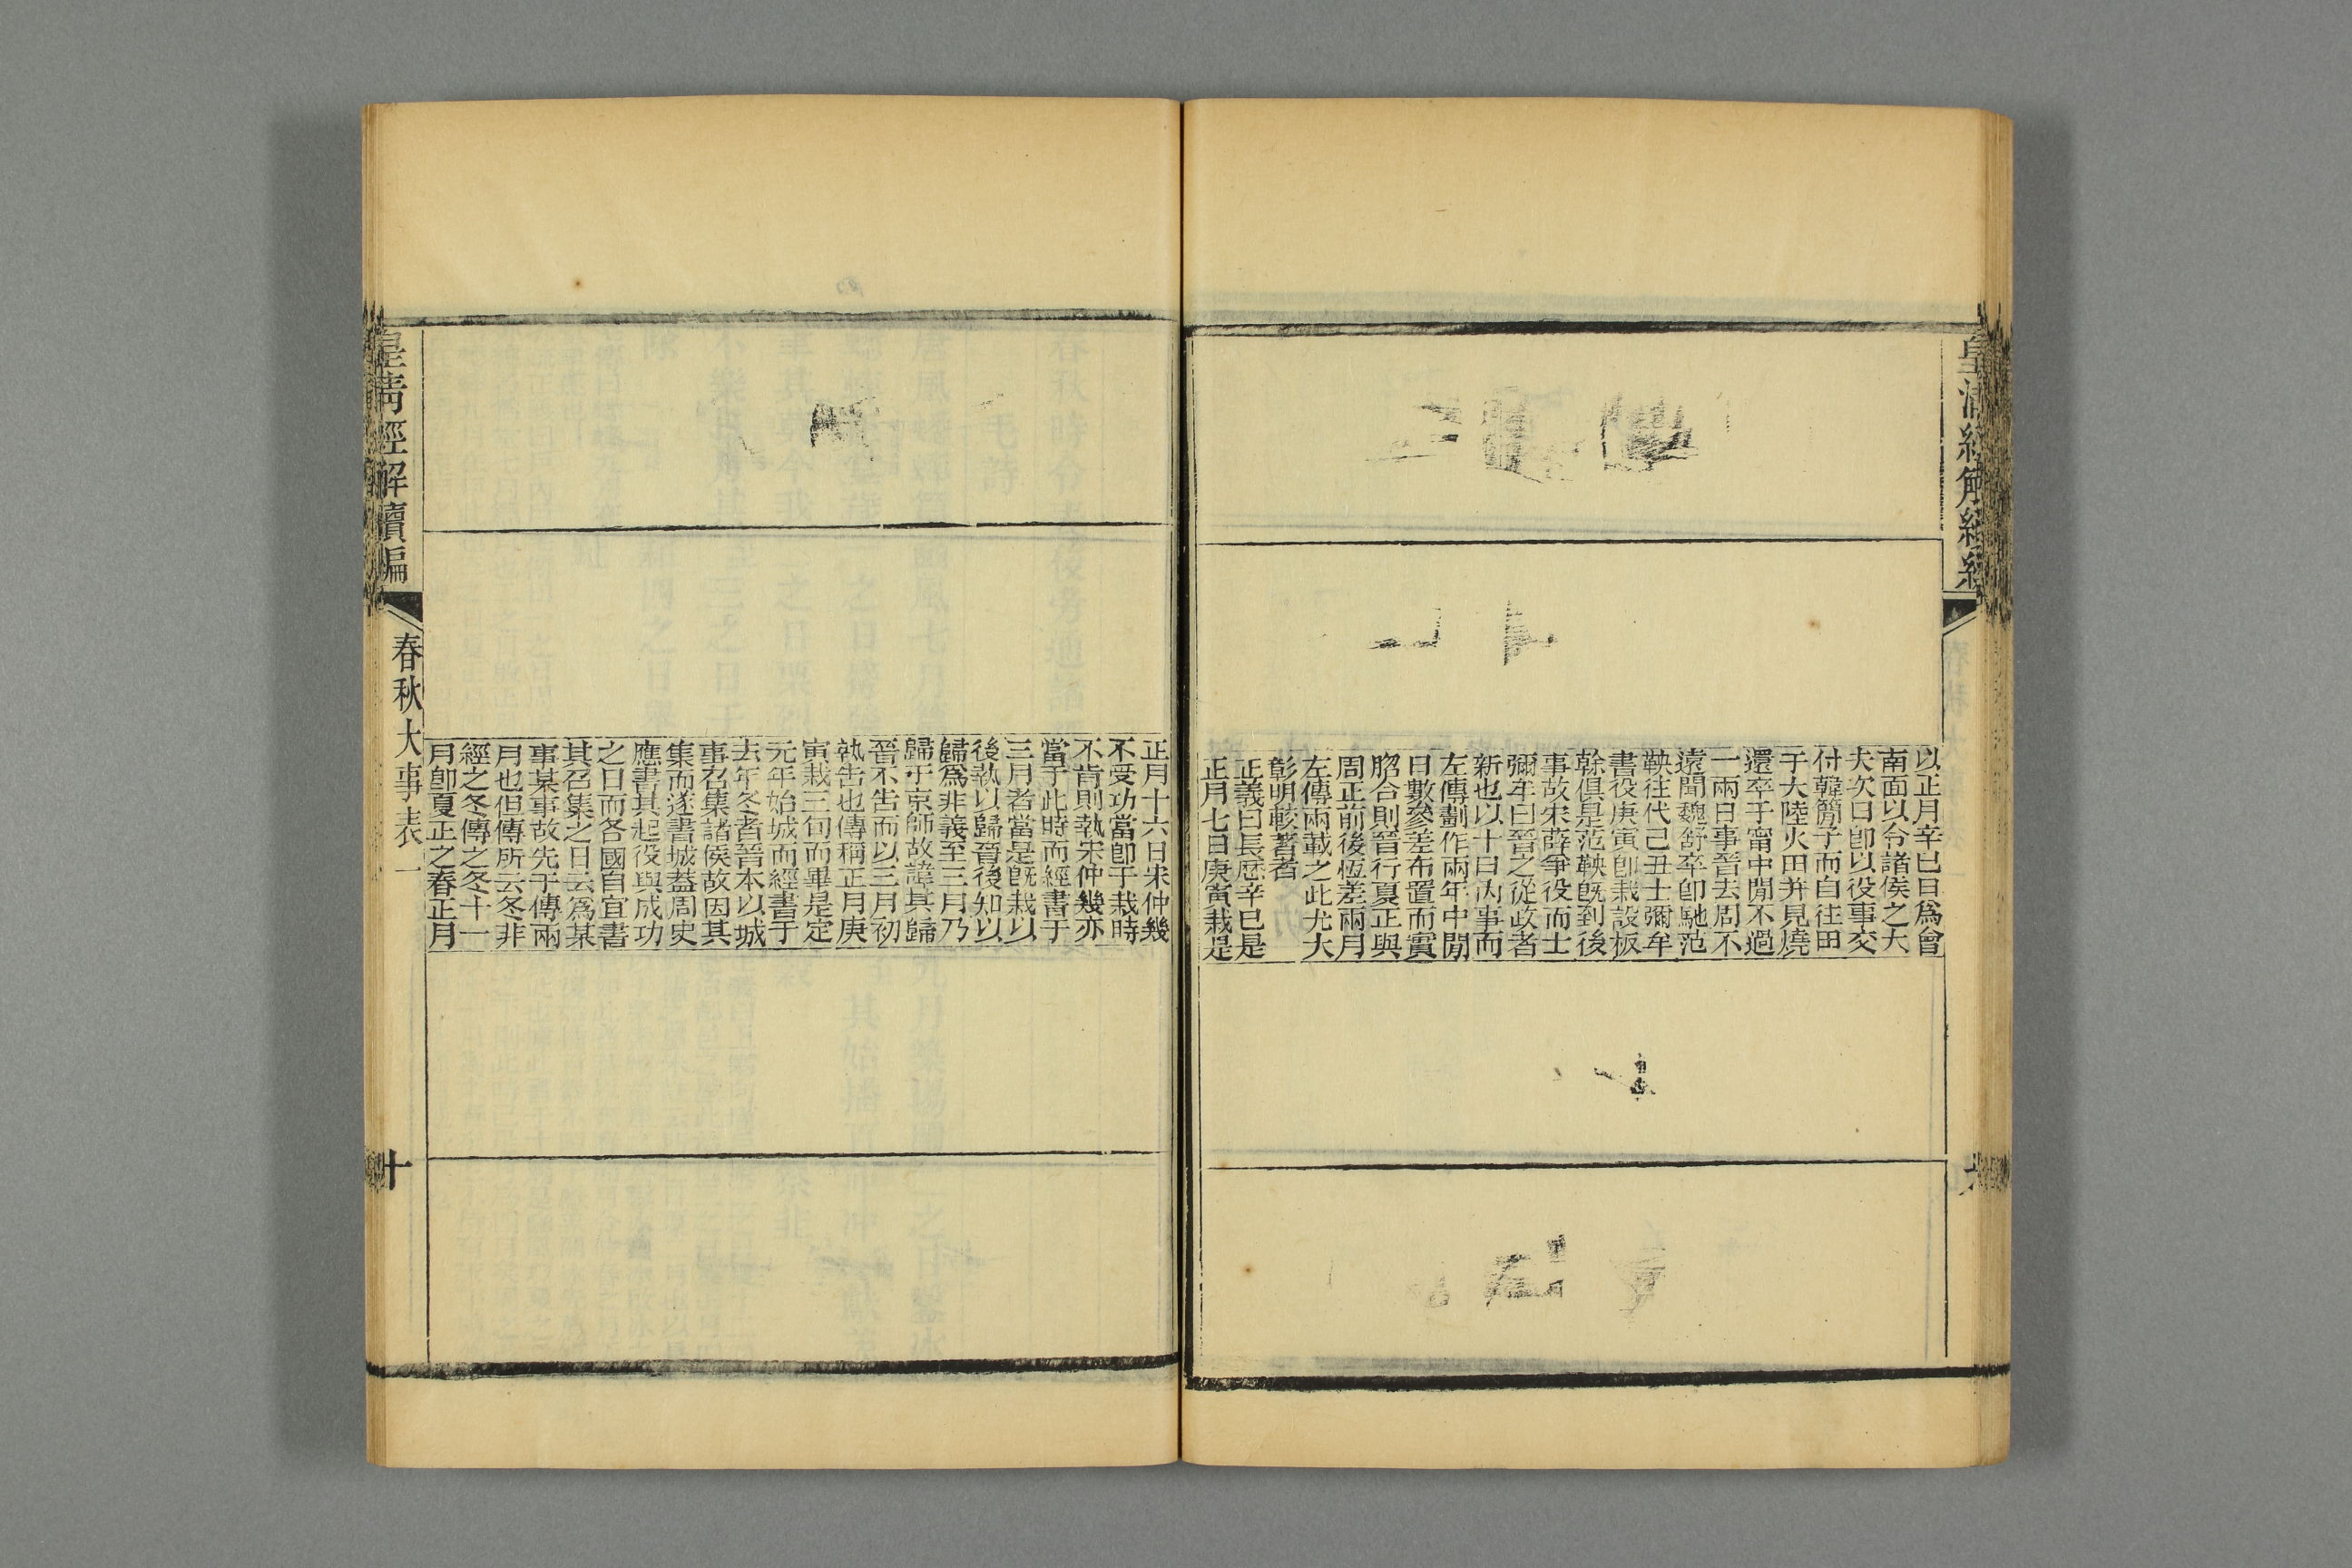 皇清經解續編
以正月辛巳日爲會
南面以令諸侯之大
夫次日卽以役事交
付韓簡子而自往田
于大陸火田并見燒
還卒于甯中閒不過
一兩日事晉去周不
遠聞魏舒卒卽馳范
鞅往代己丑士彌牟
書役庚寅卽栽設板
榦俱是范鞅旣到後
事故宋薛爭役而士
彌牟曰晉之從政者
新也以十日內事而
左傳劃作兩年中閒
日數參差布置而實
脗合則晉行夏正與
周正前後恆差兩月
左傳兩載之此尤大
彰明較著者
正義曰長歷辛巳是
正月七日庚寅栽是
正月十六日宋仲幾
不受功當卽于栽時
不肯則執宋仲幾亦
當于此時而經書于
三月者當是旣栽以
後執以歸晉後知以
歸爲非義至三月乃
歸于京師故諱其歸
晉不告而以三月初
執告也傳稱正月庚
寅栽三旬而畢是定
元年始城而經書于
去年冬者晉本以城
事召集諸侯故因其
集而遂書城蓋周史
應書其起役與成功
之日而各國自宜書
其召集之日云爲某
事某事故先于傳兩
月也但傳所云冬非
經之冬傳之冬十一
月卽夏正之春正月
皇清經解續編
春秋大事表一
十